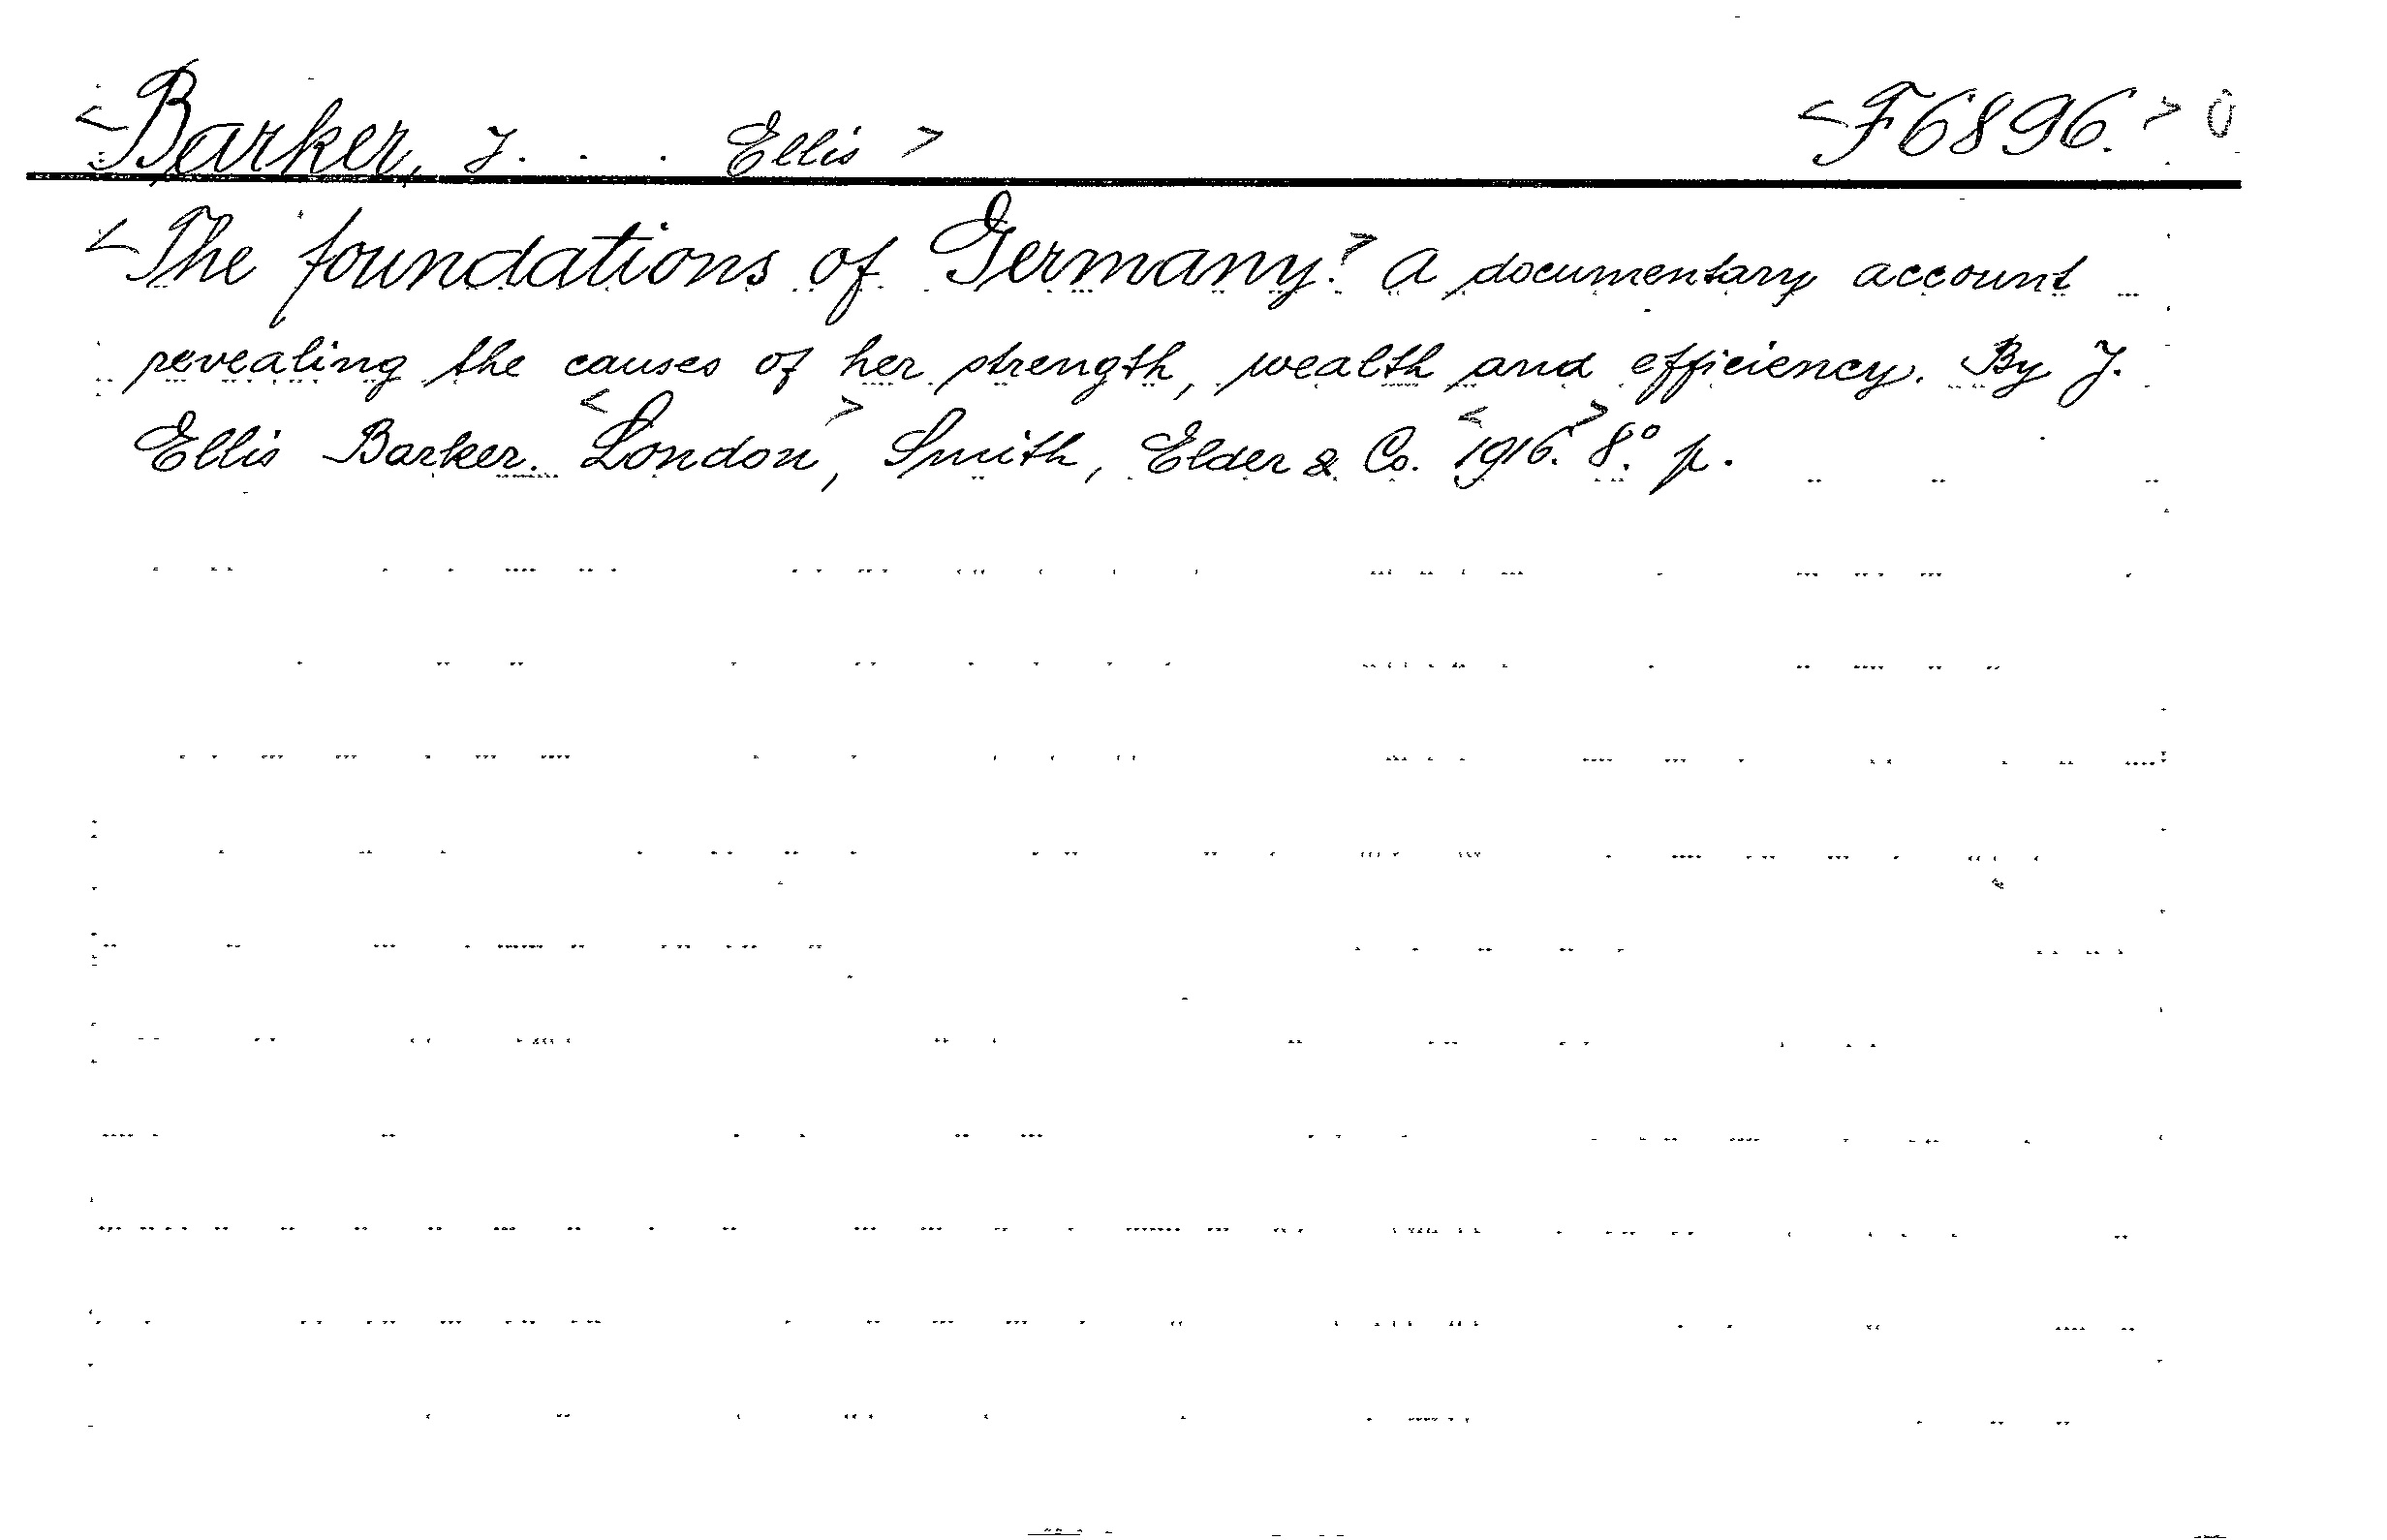 <Barker, J. . . Ellis> <F6896.> 0
<The foundations of Germany.> A documentary account
revealing the causes of her strength, wealth and efficiency. By J.
Ellis Barker. <London>, Smith, Elder & Co. <1916.> 8º. p.